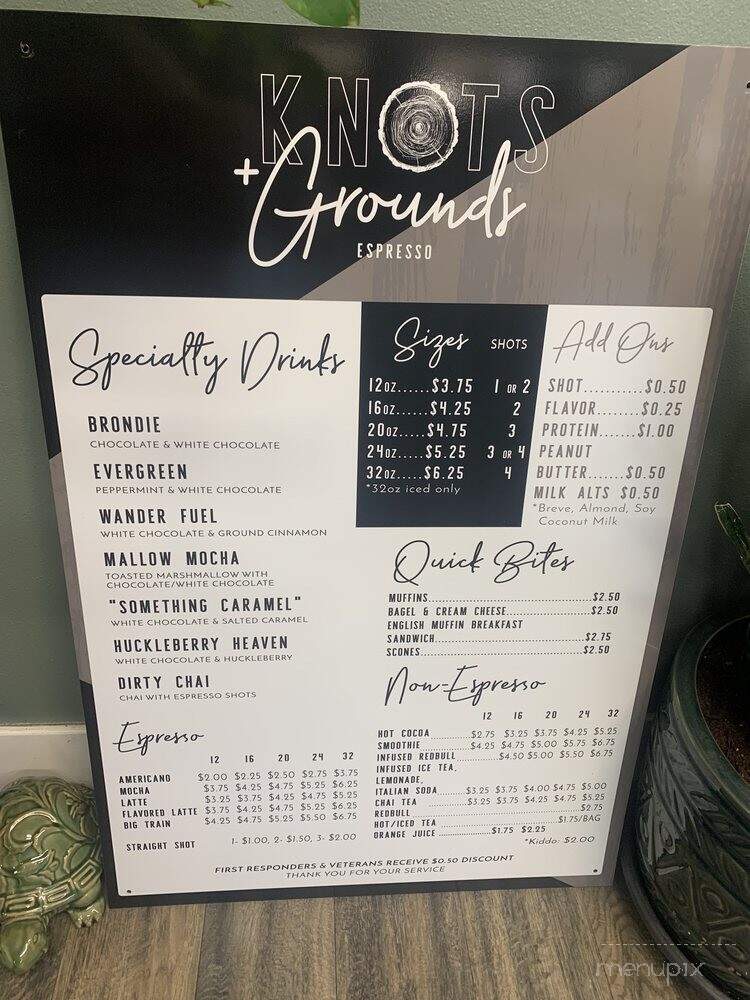 KNOTS
+Grounds
ESPRESSO
Specialty Drinks
BRONDIE
CHOCOLATE & WHITE CHOCOLATE
EVERGREEN
PEPPERMINT & WHITE CHOCOLATE
WANDER FUEL
WHITE CHOCOLATE & GROUND CINNAMON
MALLOW MOCHA
TOASTED MARSHMALLOW WITH
CHOCOLATE/WHITE CHOCOLATE
"SOMETHING CARAMEL"
WHITE CHOCOLATE & SALTED CARAMEL
HUCKLEBERRY HEAVEN
WHITE CHOCOLATE & HUCKLEBERRY
DIRTY CHAI
CHAI WITH ESPRESSO SHOTS
Espresso
12 16 20 24 32
AMERICANO $2.00 $2.25 $2.50 $2.75 $3.75
MOCHA $3.75 $4.25 $4.75 $5.25 $6.25
LATTE $3.25 $3.75 $4.25 $4.75 $5.75
FLAVORED LATTE $3.75 $4.25 $4.75 $5.25 $6.25
BIG TRAIN $4.25 $4.75 $5.25 $5.50 $6.75
STRAIGHT SHOT 1- $1.00, 2- $1.50, 3- $2.00
Sizes SHOTS
12oz......$3.75 1 OR 2
16oz......$4.25 2
20oz.....$4.75 3
24oz.....$5.25 3 OR 4
32oz.....$6.25 4
*32oz iced only
Add Ons
SHOT...........$0.50
FLAVOR........$0.25
PROTEIN.......$1.00
PEANUT
BUTTER.......$0.50
MILK ALTS $0.50
*Breve, Almond, Soy
Coconut Milk
Quick Bites
MUFFINS..........$2.50
BAGEL & CREAM CHEESE..........$2.50
ENGLISH MUFFIN BREAKFAST
SANDWICH..........$2.75
SCONES..........$2.50
Non-Espresso
12 16 20 24 32
HOT COCOA..........$2.75 $3.25 $3.75 $4.25 $5.25
SMOOTHIE..........$4.25 $4.75 $5.00 $5.75 $6.75
INFUSED REDBULL..........$4.50 $5.00 $5.50 $6.75
INFUSED ICE TEA,
LEMONADE,
ITALIAN SODA........$3.25 $3.75 $4.00 $4.75 $5.00
CHAI TEA..........$3.25 $3.75 $4.25 $4.75 $5.25
REDBULL..........$2.75
HOT/ICED TEA..........$1.75/BAG
ORANGE JUICE..........$1.75 $2.25
*Kiddo: $2.00
FIRST RESPONDERS & VETERANS RECEIVE $0.50 DISCOUNT
THANK YOU FOR YOUR SERVICE
menupix